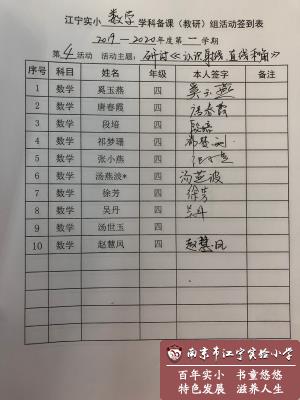 江宁实小 数学 学科备课（教研）组活动签到表
2019—2020年度第一学期
第 4 活动 活动主题：研讨《认识射线、直线和角》
序号 科目 姓名 年级 本人签字 备注
1 数学 奚玉燕 四 奚玉燕
2 数学 唐春霞 四 唐春霞
3 数学 段培 四 段培
4 数学 祁梦珊 四 祁梦珊
5 数学 张小燕 四
6 数学 汤燕波* 四 汤燕波
7 数学 徐芳 四 徐芳
8 数学 吴丹 四 吴丹
9 数学 汤世玉 四
10 数学 赵慧风 四 赵慧风
南京市江宁实验小学
百年实小 书童悠悠
特色发展 滋养人生